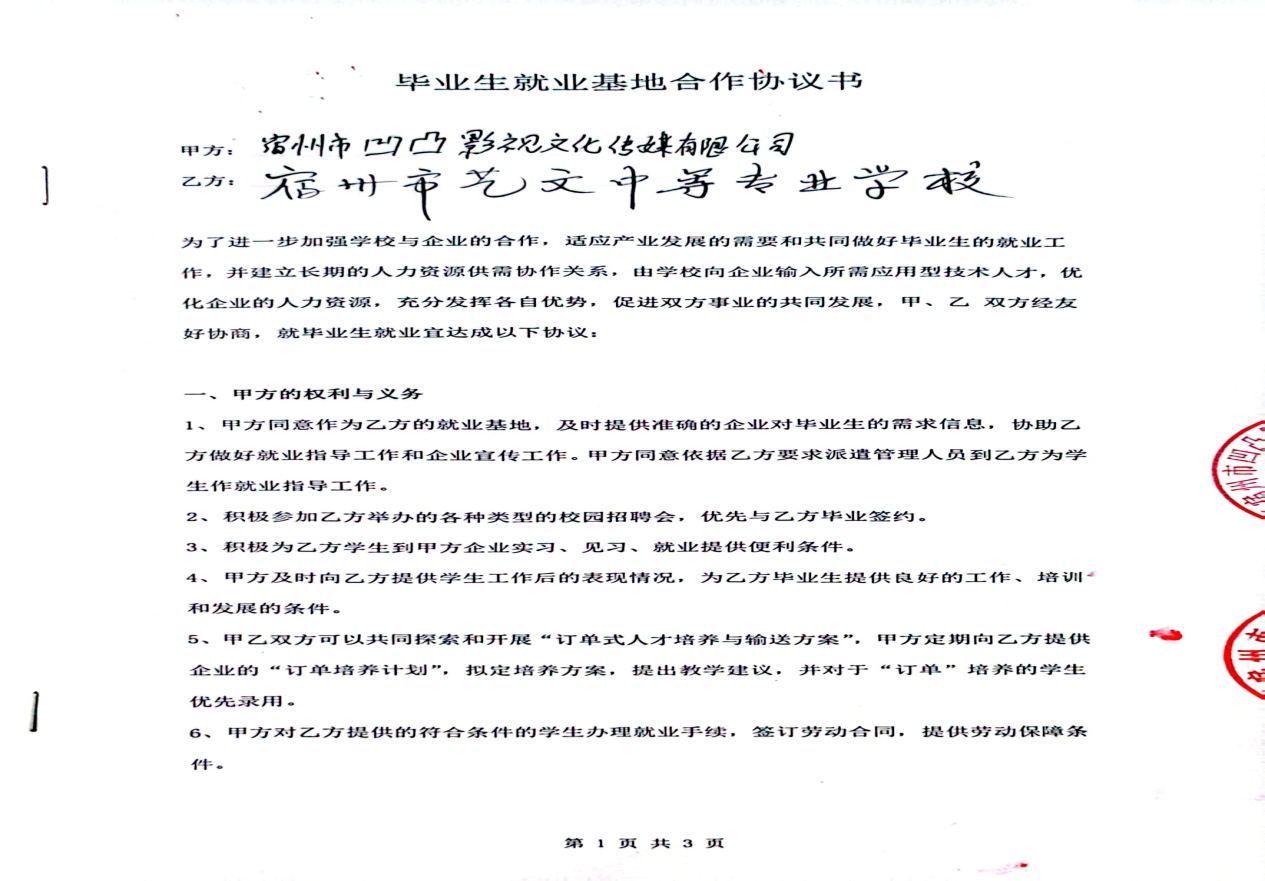 毕业生就业基地合作协议书
甲方：宿州市凹凸影视文化传媒有限公司
乙方：宿州市艺文中等专业学校
为了进一步加强学校与企业的合作，适应产业发展的需要和共同做好毕业生的就业工
作，并建立长期的人力资源供需协作关系，由学校向企业输入所需应用型技术人才，优
化企业的人力资源，充分发挥各自优势，促进双方事业的共同发展，甲、乙 双方经友
好协商，就毕业生就业宜达成以下协议：
一、甲方的权利与义务
1、甲方同意作为乙方的就业基地，及时提供准确的企业对毕业生的需求信息，协助乙
方做好就业指导工作和企业宣传工作。甲方同意依据乙方要求派遣管理人员到乙方为学
生作就业指导工作。
2、积极参加乙方举办的各种类型的校园招聘会，优先与乙方毕业签约。
3、积极为乙方学生到甲方企业实习、见习、就业提供便利条件。
4、甲方及时向乙方提供学生工作后的表现情况，为乙方毕业生提供良好的工作、培训
和发展的条件。
5、甲乙双方可以共同探索和开展“订单式人才培养与输送方案”，甲方定期向乙方提供
企业的“订单培养计划”，拟定培养方案，提出教学建议，并对于“订单”培养的学生
优先录用。
6、甲方对乙方提供的符合条件的学生办理就业手续，签订劳动合同，提供劳动保障条
件。
宿州市凹凸
宿州市
第 1 页 共 3 页